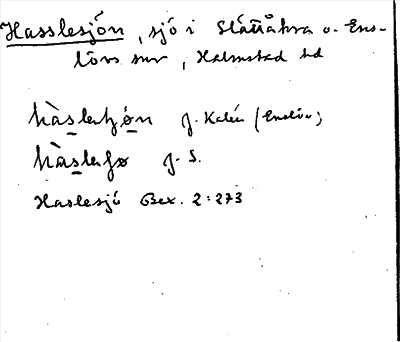 Hasslesjön, sjö i Slättåkra o. Ens-
lövs snr, Halmstad hd
hàslaʃøn g. Kalén (Enslöv;
hàslaʃø g. S.
Haslesjö Bex. 2:273